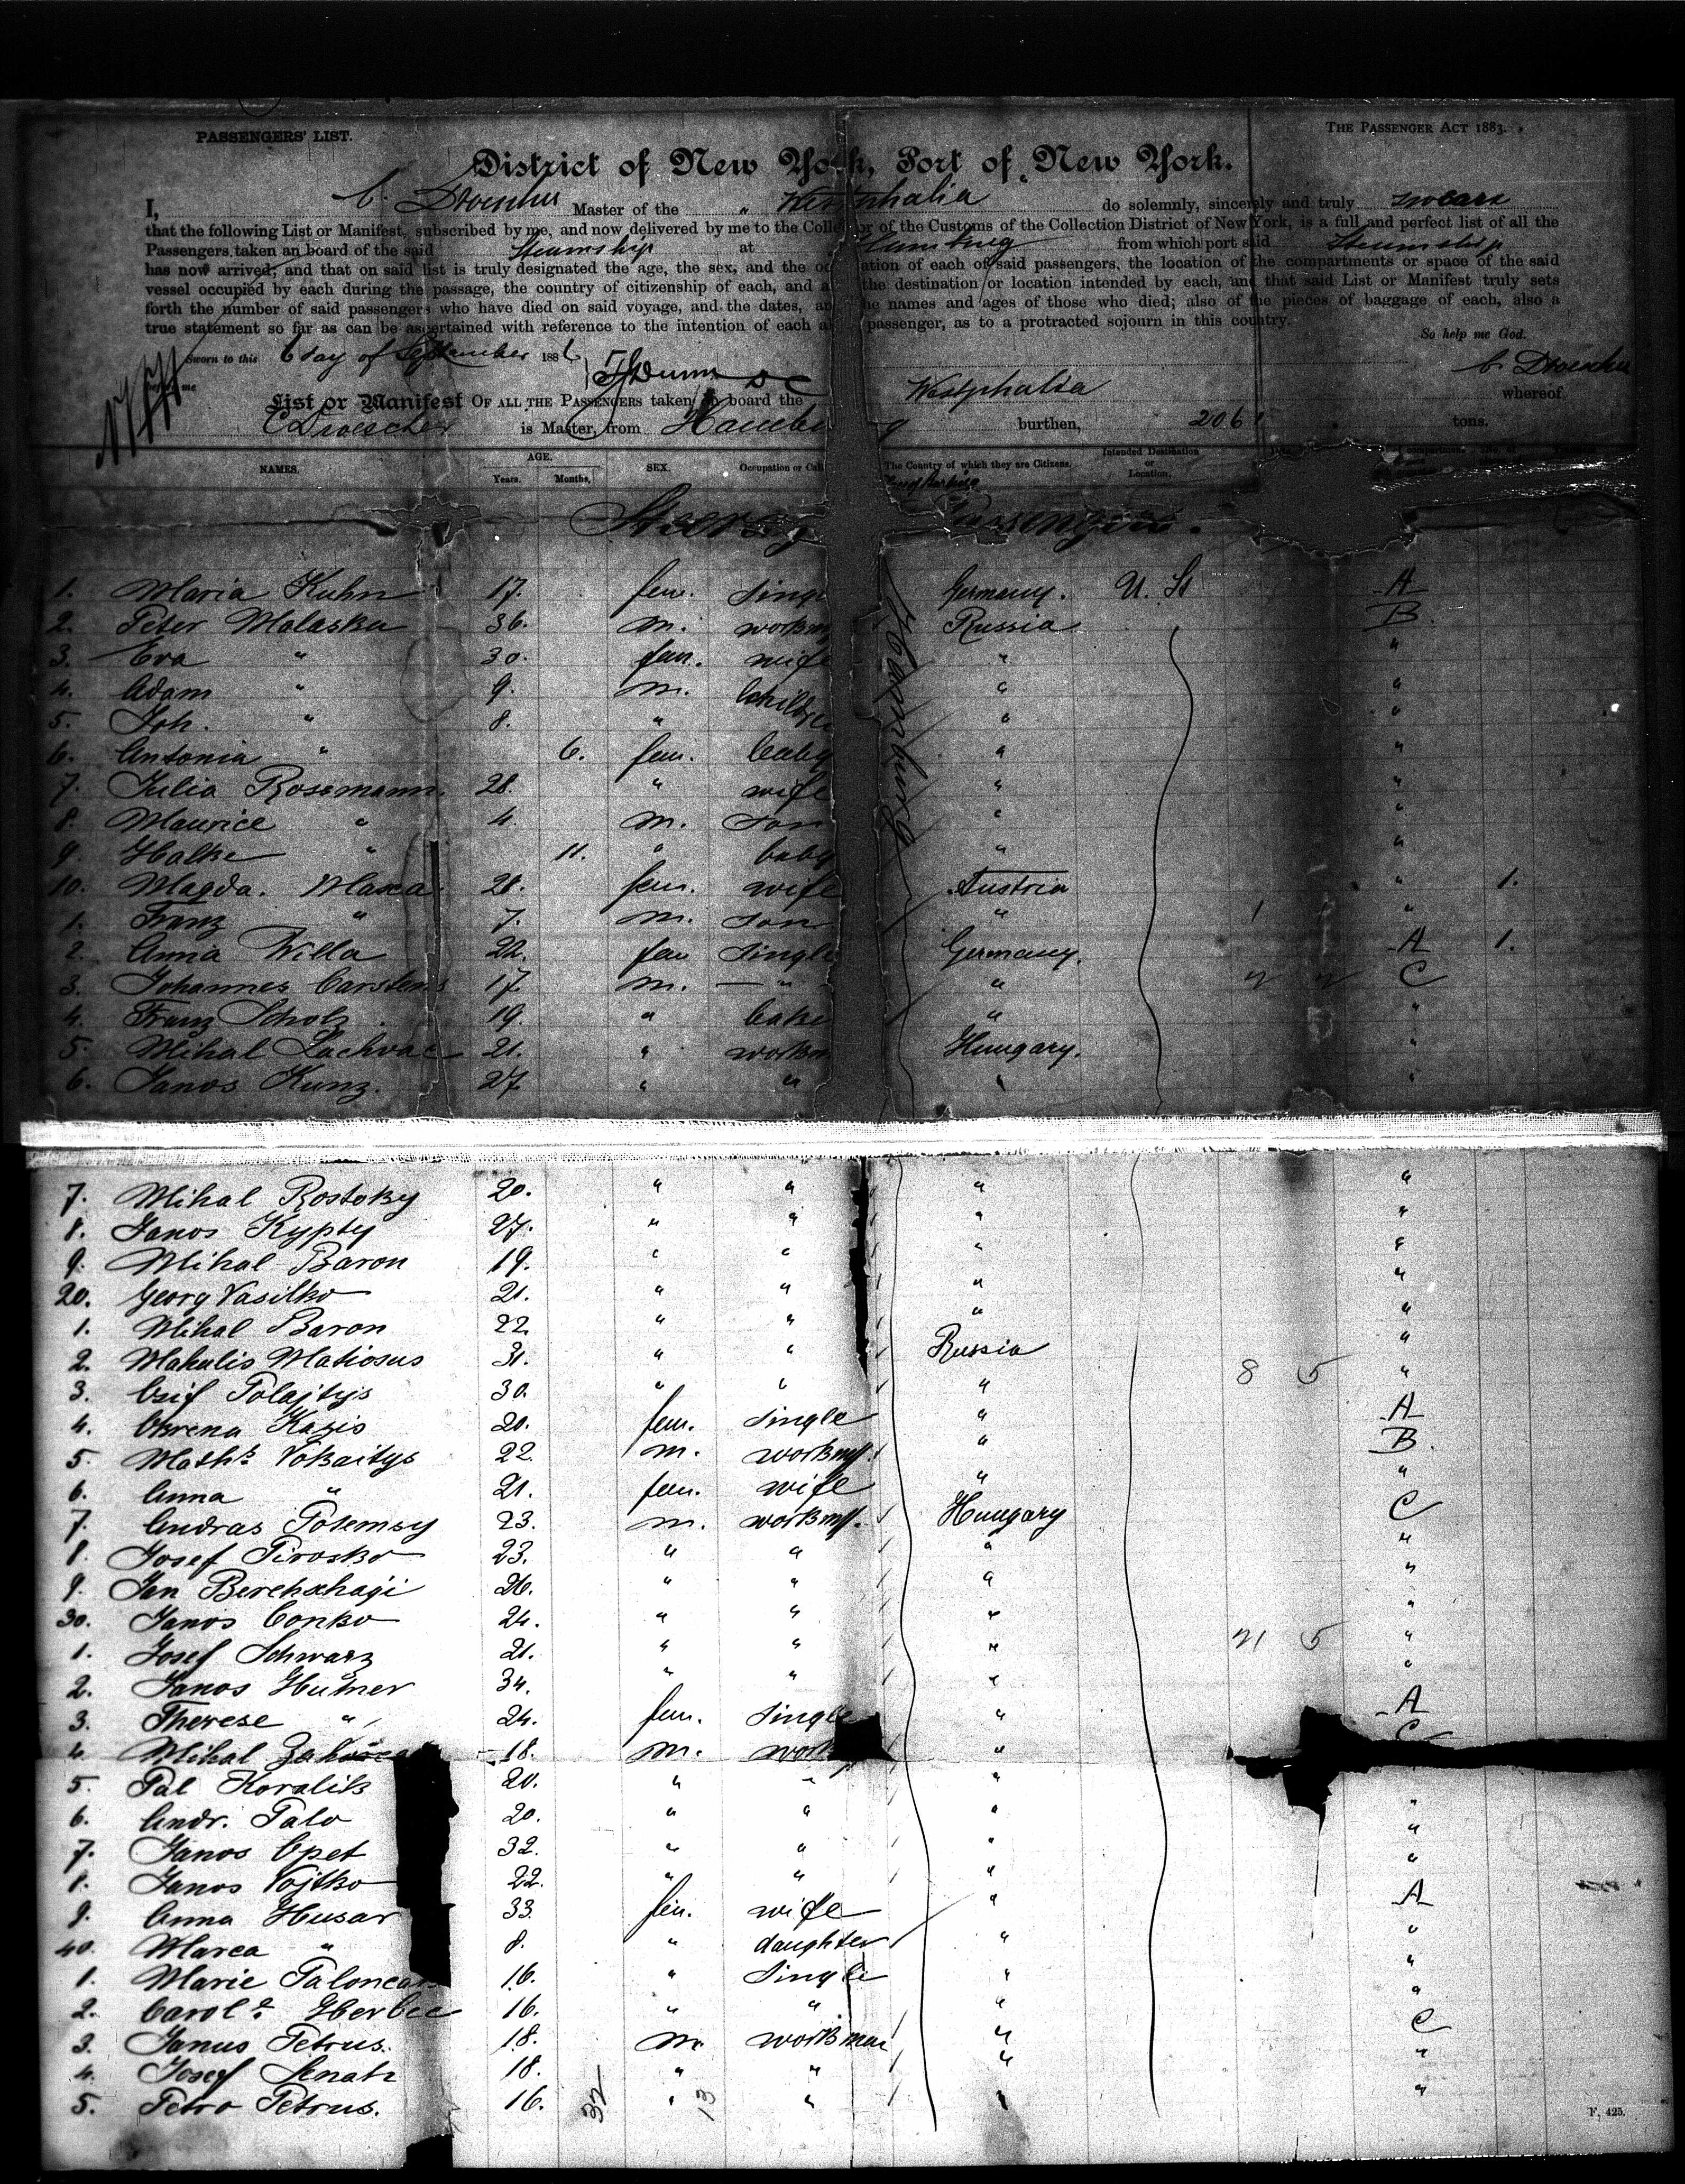 PASSENGERS' LIST.
THE PASSENGER ACT 1883.
District of New York, Port of New York.
I, C. Droescher Master of the " Westphalia do solemnly, sincerely and truly swear
that the following List or Manifest, subscribed by me, and now delivered by me to the Collector of the Customs of the Collection District of New York, is a full and perfect list of all the
Passengers taken on board of the said Steamship at Hamburg from which port said Steamship
has now arrived; and that on said list is truly designated the age, the sex, and the oc ation of each of said passengers, the location of the compartments or space of the said
vessel occupied by each during the passage, the country of citizenship of each, and a the destination or location intended by each, and that said List or Manifest truly sets
forth the number of said passengers who have died on said voyage, and the dates, an he names and ages of those who died; also of the pieces of baggage of each, also a
true statement so far as can be ascertained with reference to the intention of each a passenger, as to a protracted sojourn in this country.
So help me God.
Sworn to this 6 day of September 1886
before me
C. Droescher
List or Manifest OF ALL THE PASSENGERS taken board the Westphalia whereof
C Droescher is Master, from Hambu g burthen, 206 tons.
NAMES. AGE. Years. Months. SEX. Occupation or Cal The Country of which they are Citizens. Intended Destination or Location.
Steerag Passengers.
1. Maria Kuhn 17. fem. Sing Germany. U. St A
2. Peter Malaska 36. m. workm Russia B.
3. Eva " 30. fem. wife " "
4. Adam " 9. m. Childre " "
5. Joh. " 8. " " "
6. Antonia " 6. fem. baby " "
7. Julia Rosemann. 28. " wife " "
8. Maurice " 4. m. Son " "
9. Halke " 11. " baby " "
10. Magda. Masca 28. fem. wife Austria " 1.
1. Franz " 7. m. Son " 1 "
2. Anna Willa 22. fem Single Germany. A 1.
3. Johannes Carstens 17 m. — " " C
4. Franz Scholz. 19. " bake " "
5. Mihal Lachvac 21. " workm Hungary. "
6. Janos Kunz. 27 " " " "
7. Mihal Rostoky 20. " " " "
8. Janos Kypty 27. " " " "
9. Mihal Baron 19. " " " "
20. Georg Vasilko 21. " " " "
1. Mihal Baron 22. " " " "
2. Makulis Matiosus 31. " " Russia 8 5 "
3. Osif Polajtys 30. " " " "
4. Kazis 20. fem. Single " A
5. Math. Vokaitys 22. m. workm. " B.
6. Anna " 21. fem. wife " "
7. Andras Potemsy 23. m. workm. Hungary C
8. Josef Pirosko 23. " " " "
9. Jan Berchxhagi 26. " " " "
30. Janos Conko 24. " " " "
1. Josef Schwarz 21. " " " 21 5 "
2. Janos Hutner 34. " " " "
3. Therese " 24. fem. Single " A
4. Mihal 18. m. work " C
5. Pal Koralik 20. " " "
6. Andr. Palo 20. " " " "
7. Janos Opet 32. " " " "
8. Janos Vojtko 22. " " " "
9. Anna Husar 33. fem. wife " A
40. Marca " 8. " daughter " "
1. Marie 16. " Single " "
2. Carol. 16. " " " "
3. Janus Petrus. 18. m. workman " C
4. Josef Senatz 18. " " " "
5. Petro Petrus. 16. " " " "
32 13
F. 425.